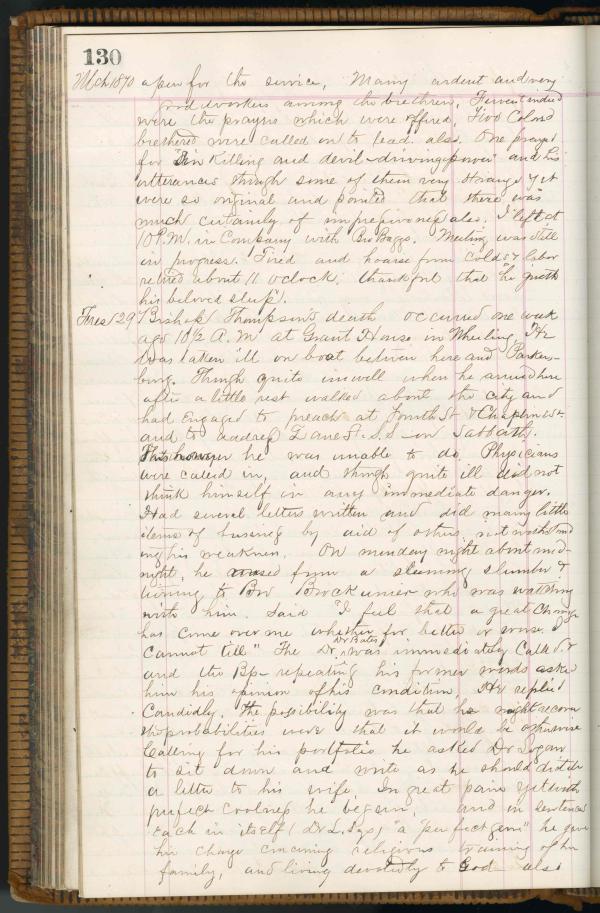 130
Mch 1870 open for the service, Many ardent and very
good workers among the brethren, Fervent indeed
were the prayers which were offered, Two Colored
brethered were called on to lead also. One prayed
for "Sin Killing and devil-driving power" and his
utterances though some of them very strange, yet
were so original and pointed that there was
much certainty of impressiveness also. I left at
10 P.M. in Company with Bro Boggs. Meeting was still
in progress. Tired and hoarse from Cold & labor
retired about 11 oclock, thankful that "he giveth
his beloved sleep".
Tues 29 Bishop Thompson's death occurred one week
ago 10½ A.M at Grant House in Wheeling, He
was taken ill on boat between here and Parkers-
burg. Though quite unwell when he arrived here
after a little rest walked about the city and
had engaged to preach at Fourth St & Chapline St.
and to address Zane St. S.S. on Sabbath.
This however he was unable to do, Physicians
were called in, and though quite ill did not
think himself in any immediate danger.
Had several letters written and did many little
items of business by aid of others, notwithstand
ing his weakness. On monday night about mid-
night, he roused from a seeming slumber &
turning to Bro Brockunier who was watching
with him. Said "I feel that a great Change
has come over me whether for better or worse I
Cannot tell" The Dr. was immediately Called &
Dr Bates
and the Bp- repeating his former words asked
him his opinion of his condition. He replied
Candidly. The possibility was that he might recover
the probabilities were that it would be otherwise
Calling for his portfolio he asked Dr Logan
to sit down and write as he should dictate
a letter to his wife. In great pain yet with
perfect Coolness he begun, and in sentences
each in itself (Dr L. Says) "a perfect gem" he gave
his charge concerning religious training of his
family, and living devotedly to God also